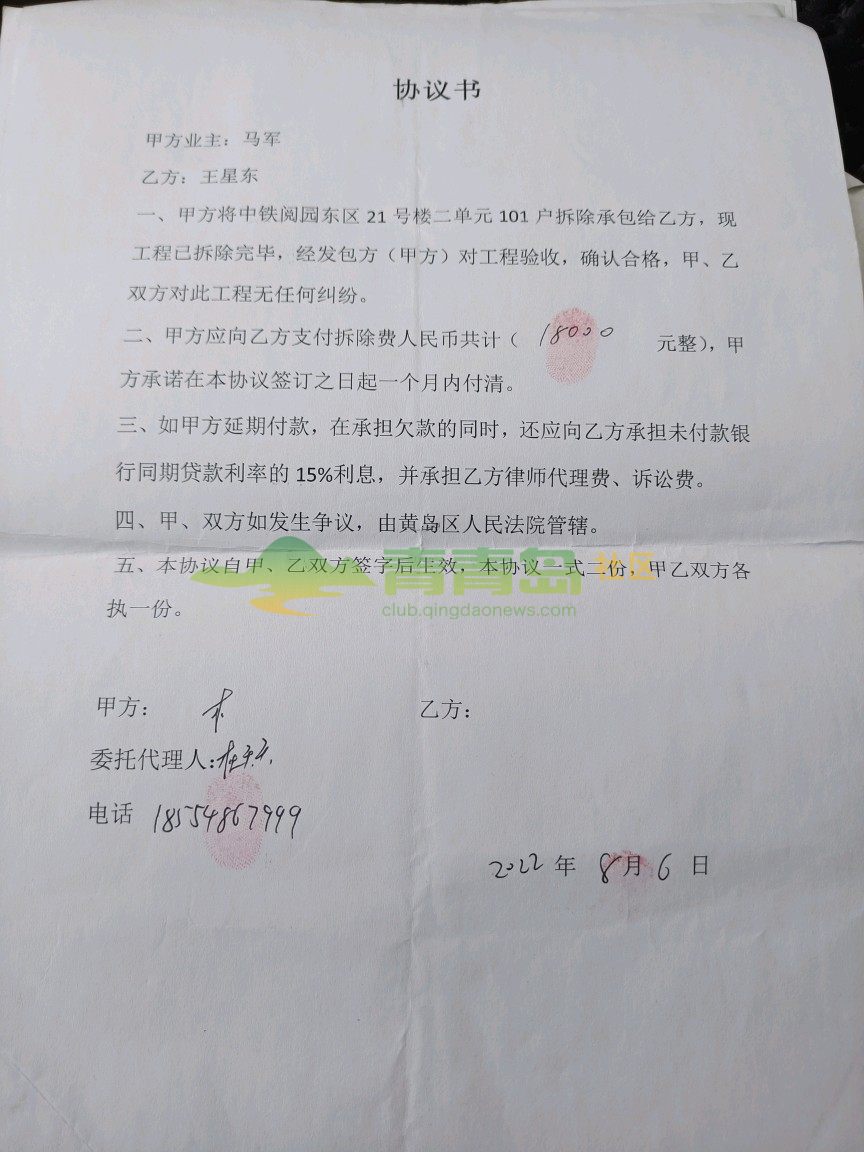 协议书
甲方业主：马军
乙方：王星东
一、甲方将中铁阅园东区 21 号楼二单元 101 户拆除承包给乙方，现
工程已拆除完毕，经发包方（甲方）对工程验收，确认合格，甲、乙
双方对此工程无任何纠纷。
二、甲方应向乙方支付拆除费人民币共计（ 18000 元整），甲
方承诺在本协议签订之日起一个月内付清。
三、如甲方延期付款，在承担欠款的同时，还应向乙方承担未付款银
行同期贷款利率的 15%利息，并承担乙方律师代理费、诉讼费。
四、甲、双方如发生争议，由黄岛区人民法院管辖。
五、本协议自甲、乙双方签字后生效，本协议一式二份，甲乙双方各
执一份。
青青岛 社区
club.qingdaonews.com
甲方： 乙方：
委托代理人：
电话 18554867999
2022 年 8 月 6 日